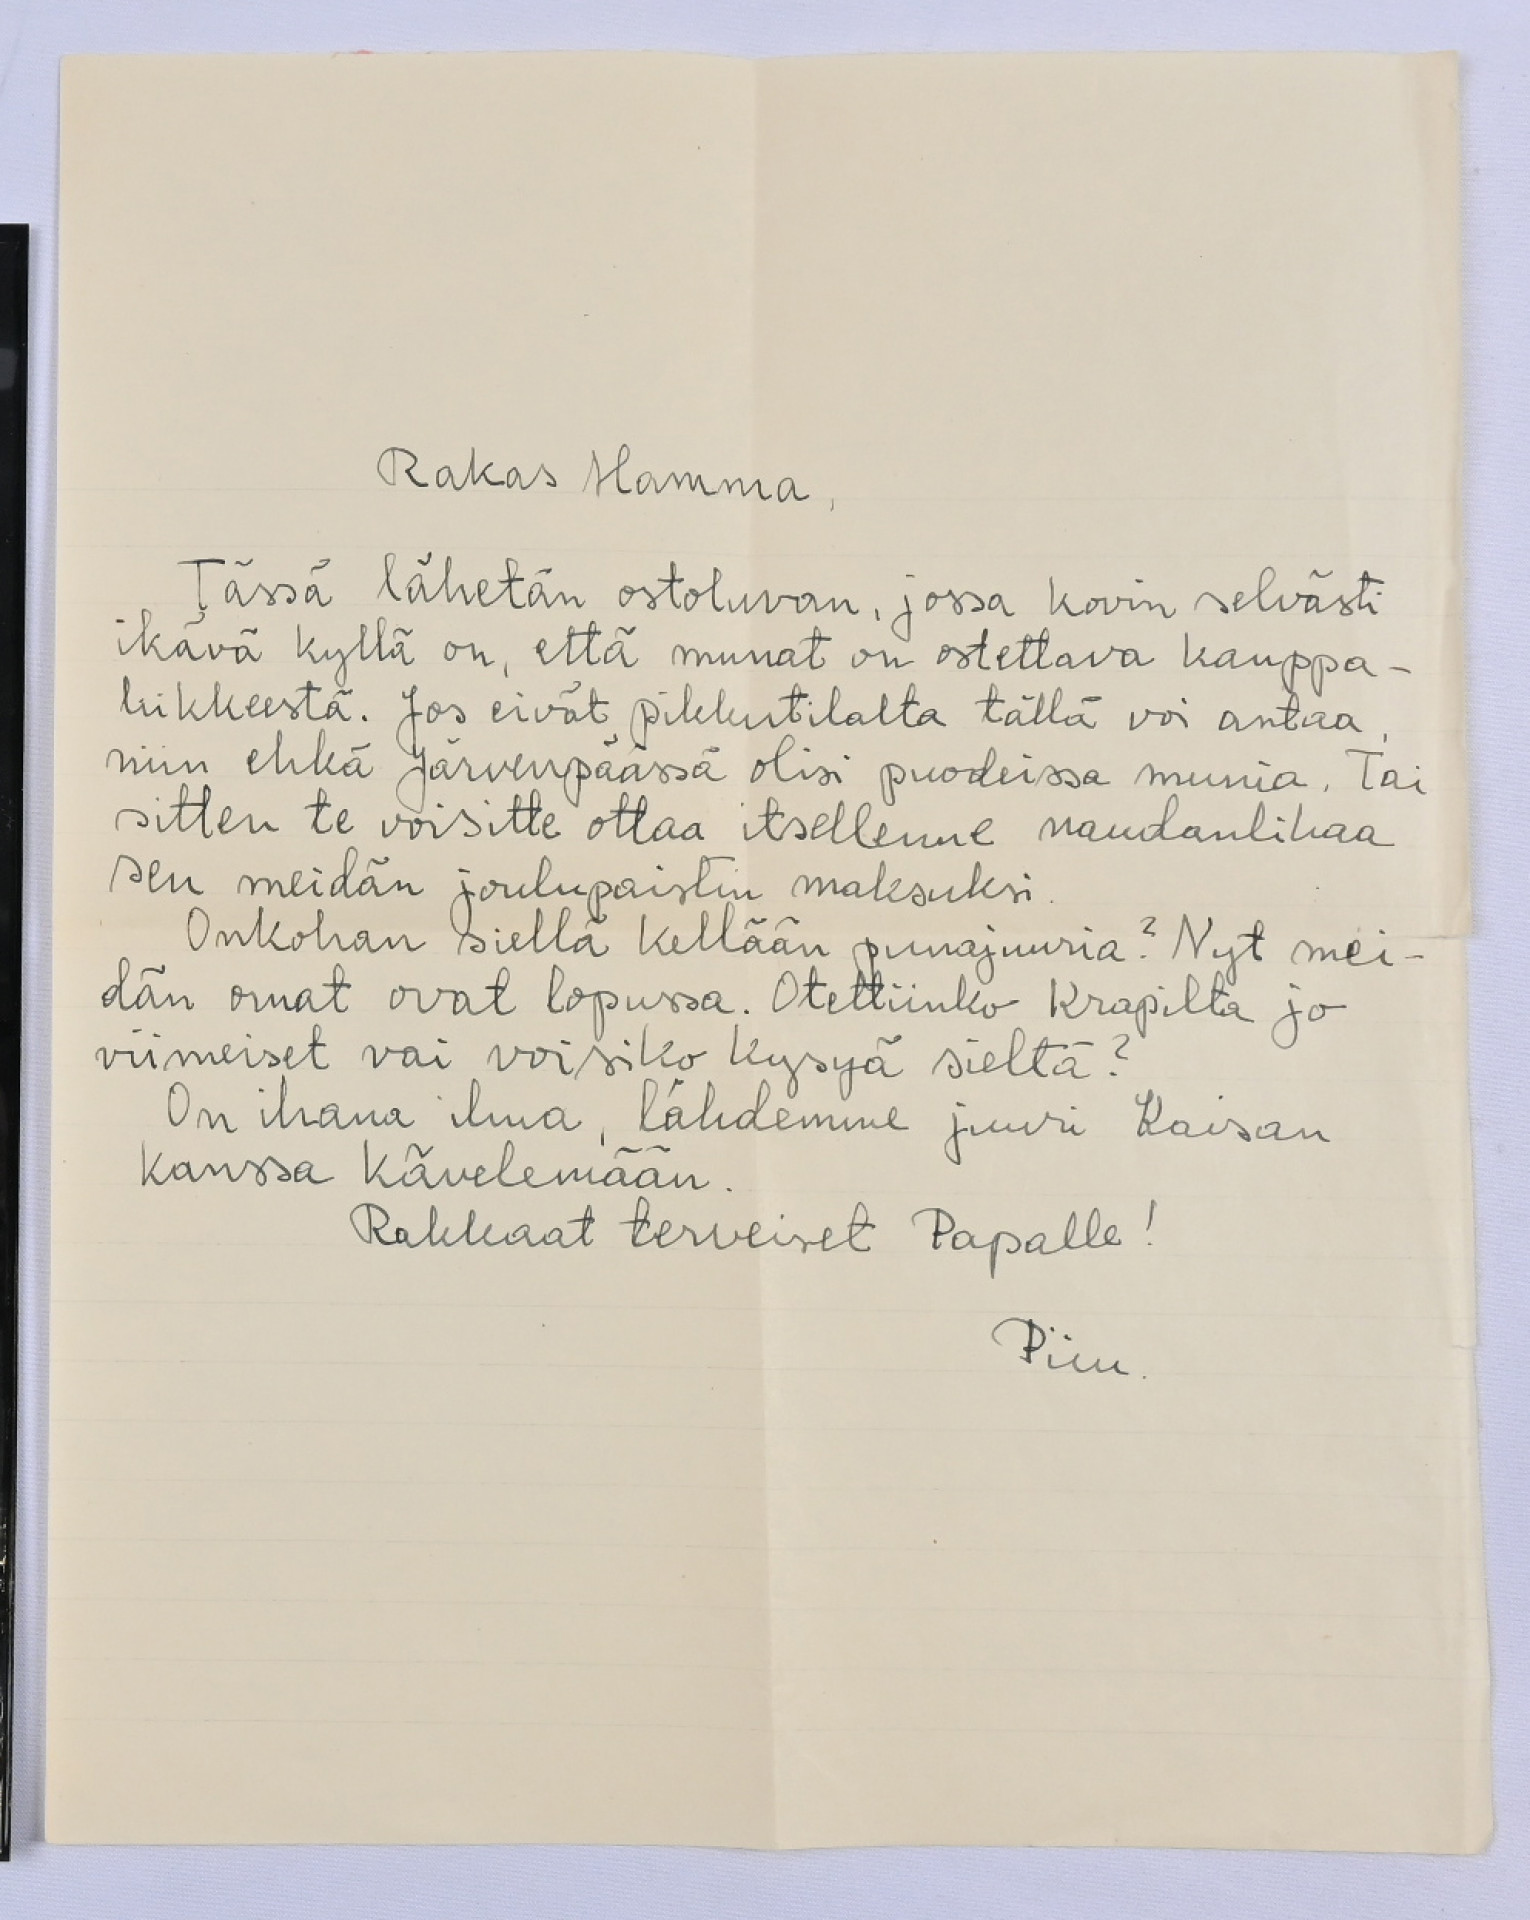 Rakas Mamma,
Tässä lähetän ostoluvan, jossa kovin selvästi
ikävä kyllä on, että munat on ostettava kauppa-
liikkeestä. Jos eivät pikkutilalta tällä voi antaa,
niin ehkä Järvenpäässä olisi puodeissa munia. Tai
sitten te voisitte ottaa itsellenne naudanlihaa
sen meidän joulupaistin maksuksi.
Onkohan siellä kellään punajuuria? Nyt mei-
dän omat ovat lopussa. Otettiinko Krapilta jo
viimeiset vai voisiko kysyä sieltä?
On ihana ilma, lähdemme juuri Kaisan
kanssa kävelemään.
Rakkaat terveiset Papalle!
Piu.